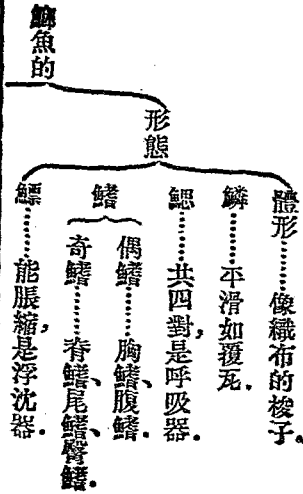 鯽魚的
形態
體形………像織布的梭子。
鱗………平滑如覆瓦.
鰓………共四對,是呼吸器.
鰭
偶鰭………胸鰭、腹鰭.
奇鰭………脊鰭、尾鰭、臀鰭.
鰾………能脹縮,是浮沈器.